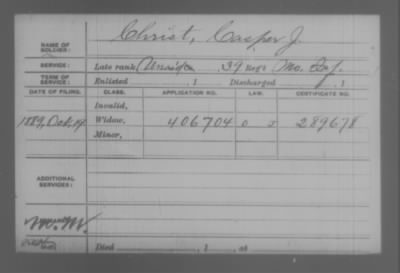 NAME OF SOLDIER: Christ, Casper J.
SERVICE: Late rank, 39 Regt Mo. Inf.
TERM OF SERVICE: Enlisted , 1 Discharged , 1
DATE OF FILING. CLASS. APPLICATION NO. LAW. CERTIFICATE NO.
Invalid,
1889, Oct, Widow, 406704 289678
Minor,
ADDITIONAL SERVICES:
Died , 1 , at